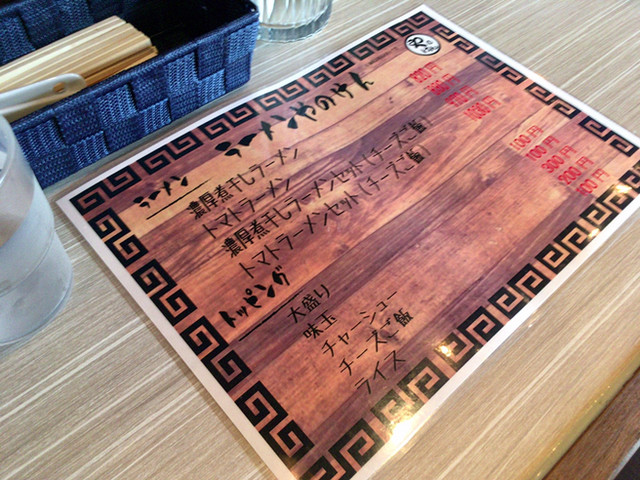 ラーメンやのけん
ラーメン
濃厚煮干しラーメン
トマトラーメン
濃厚煮干しラーメンセット(チーズご飯)
トマトラーメンセット(チーズご飯)
トッピング
大盛り 100円
味玉 100円
チャーシュー 300円
チーズご飯 200円
ライス 100円